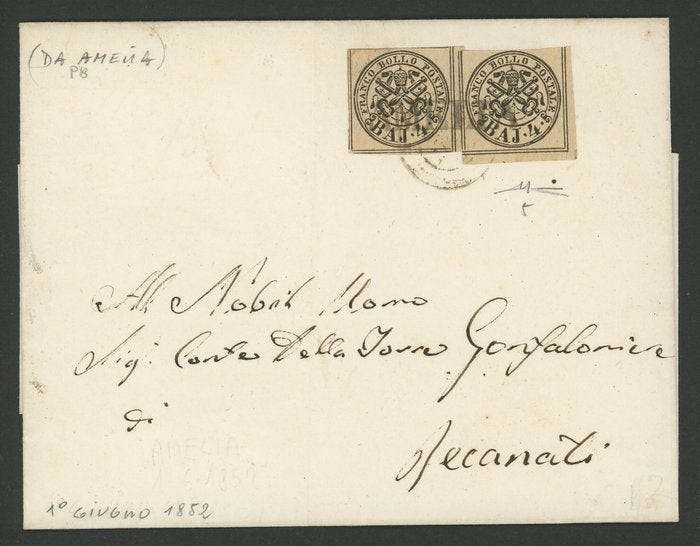 (DA AMELIA)
PB
FRANCO BOLLO POSTALE
BAJ. 4.
FRANCO BOLLO POSTALE
BAJ. 4.
5
All Nobil Uomo
Sig: Conte Della Torre Gonfaloniere
di
Recanati
AMELIA
1 6 1852
1° GIUGNO 1852